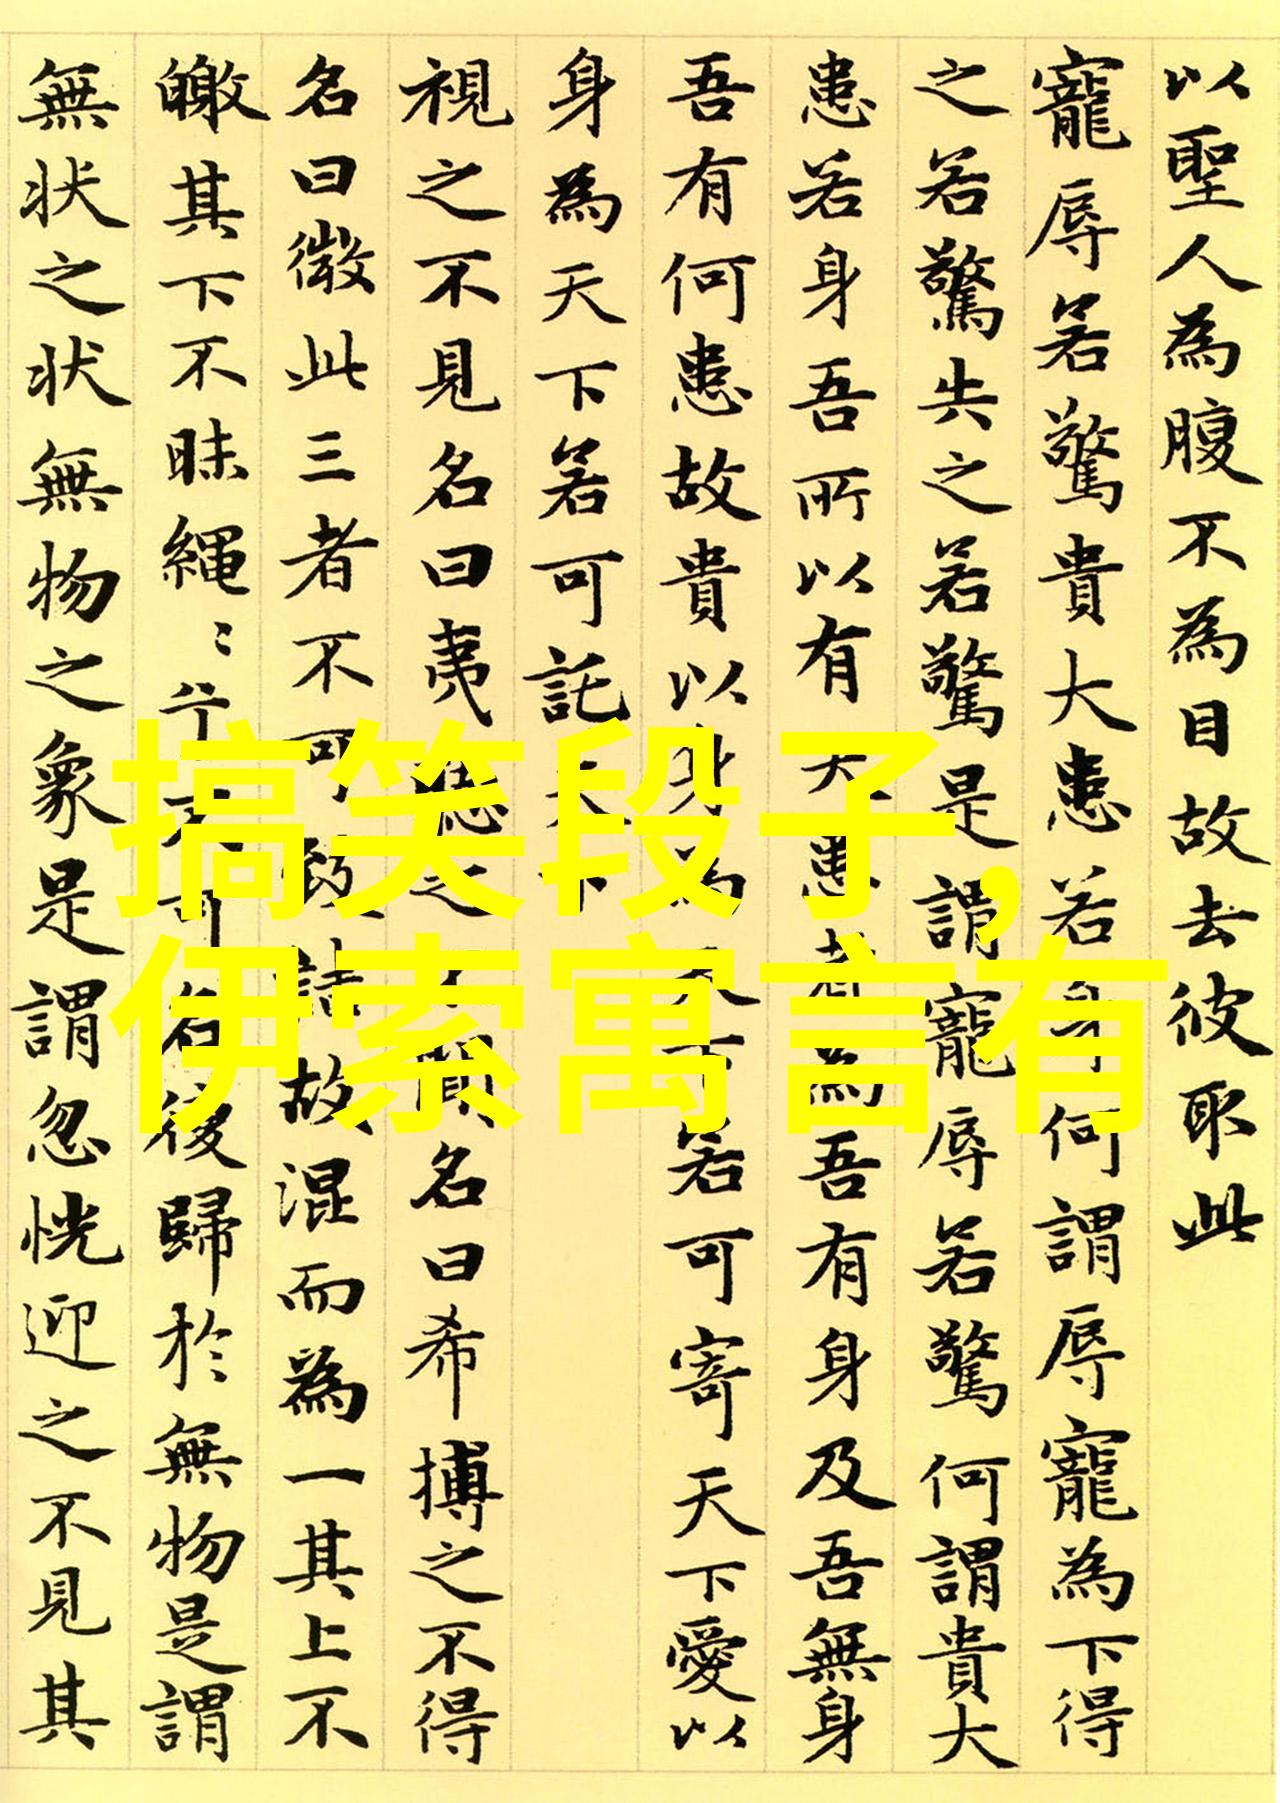 以聖人為腹不為目故去彼取此
寵辱若驚貴大患若身何謂辱寵為下得
之若驚失之若驚是謂寵辱若驚何謂貴大
患若身吾所以有大患者為吾有身及吾無身
吾有何患故貴以身為天下若可寄天下愛以
身為天下若可託天下
視之不見名曰夷聽之名曰希搏之不得
名曰微此三者不可致詰故混而為一其上不
皦其下不昧繩〻兮不可名復歸於無物是謂
無状之状無物之象是謂忽恍迎之不見其
搞笑段子,
伊索寓言有